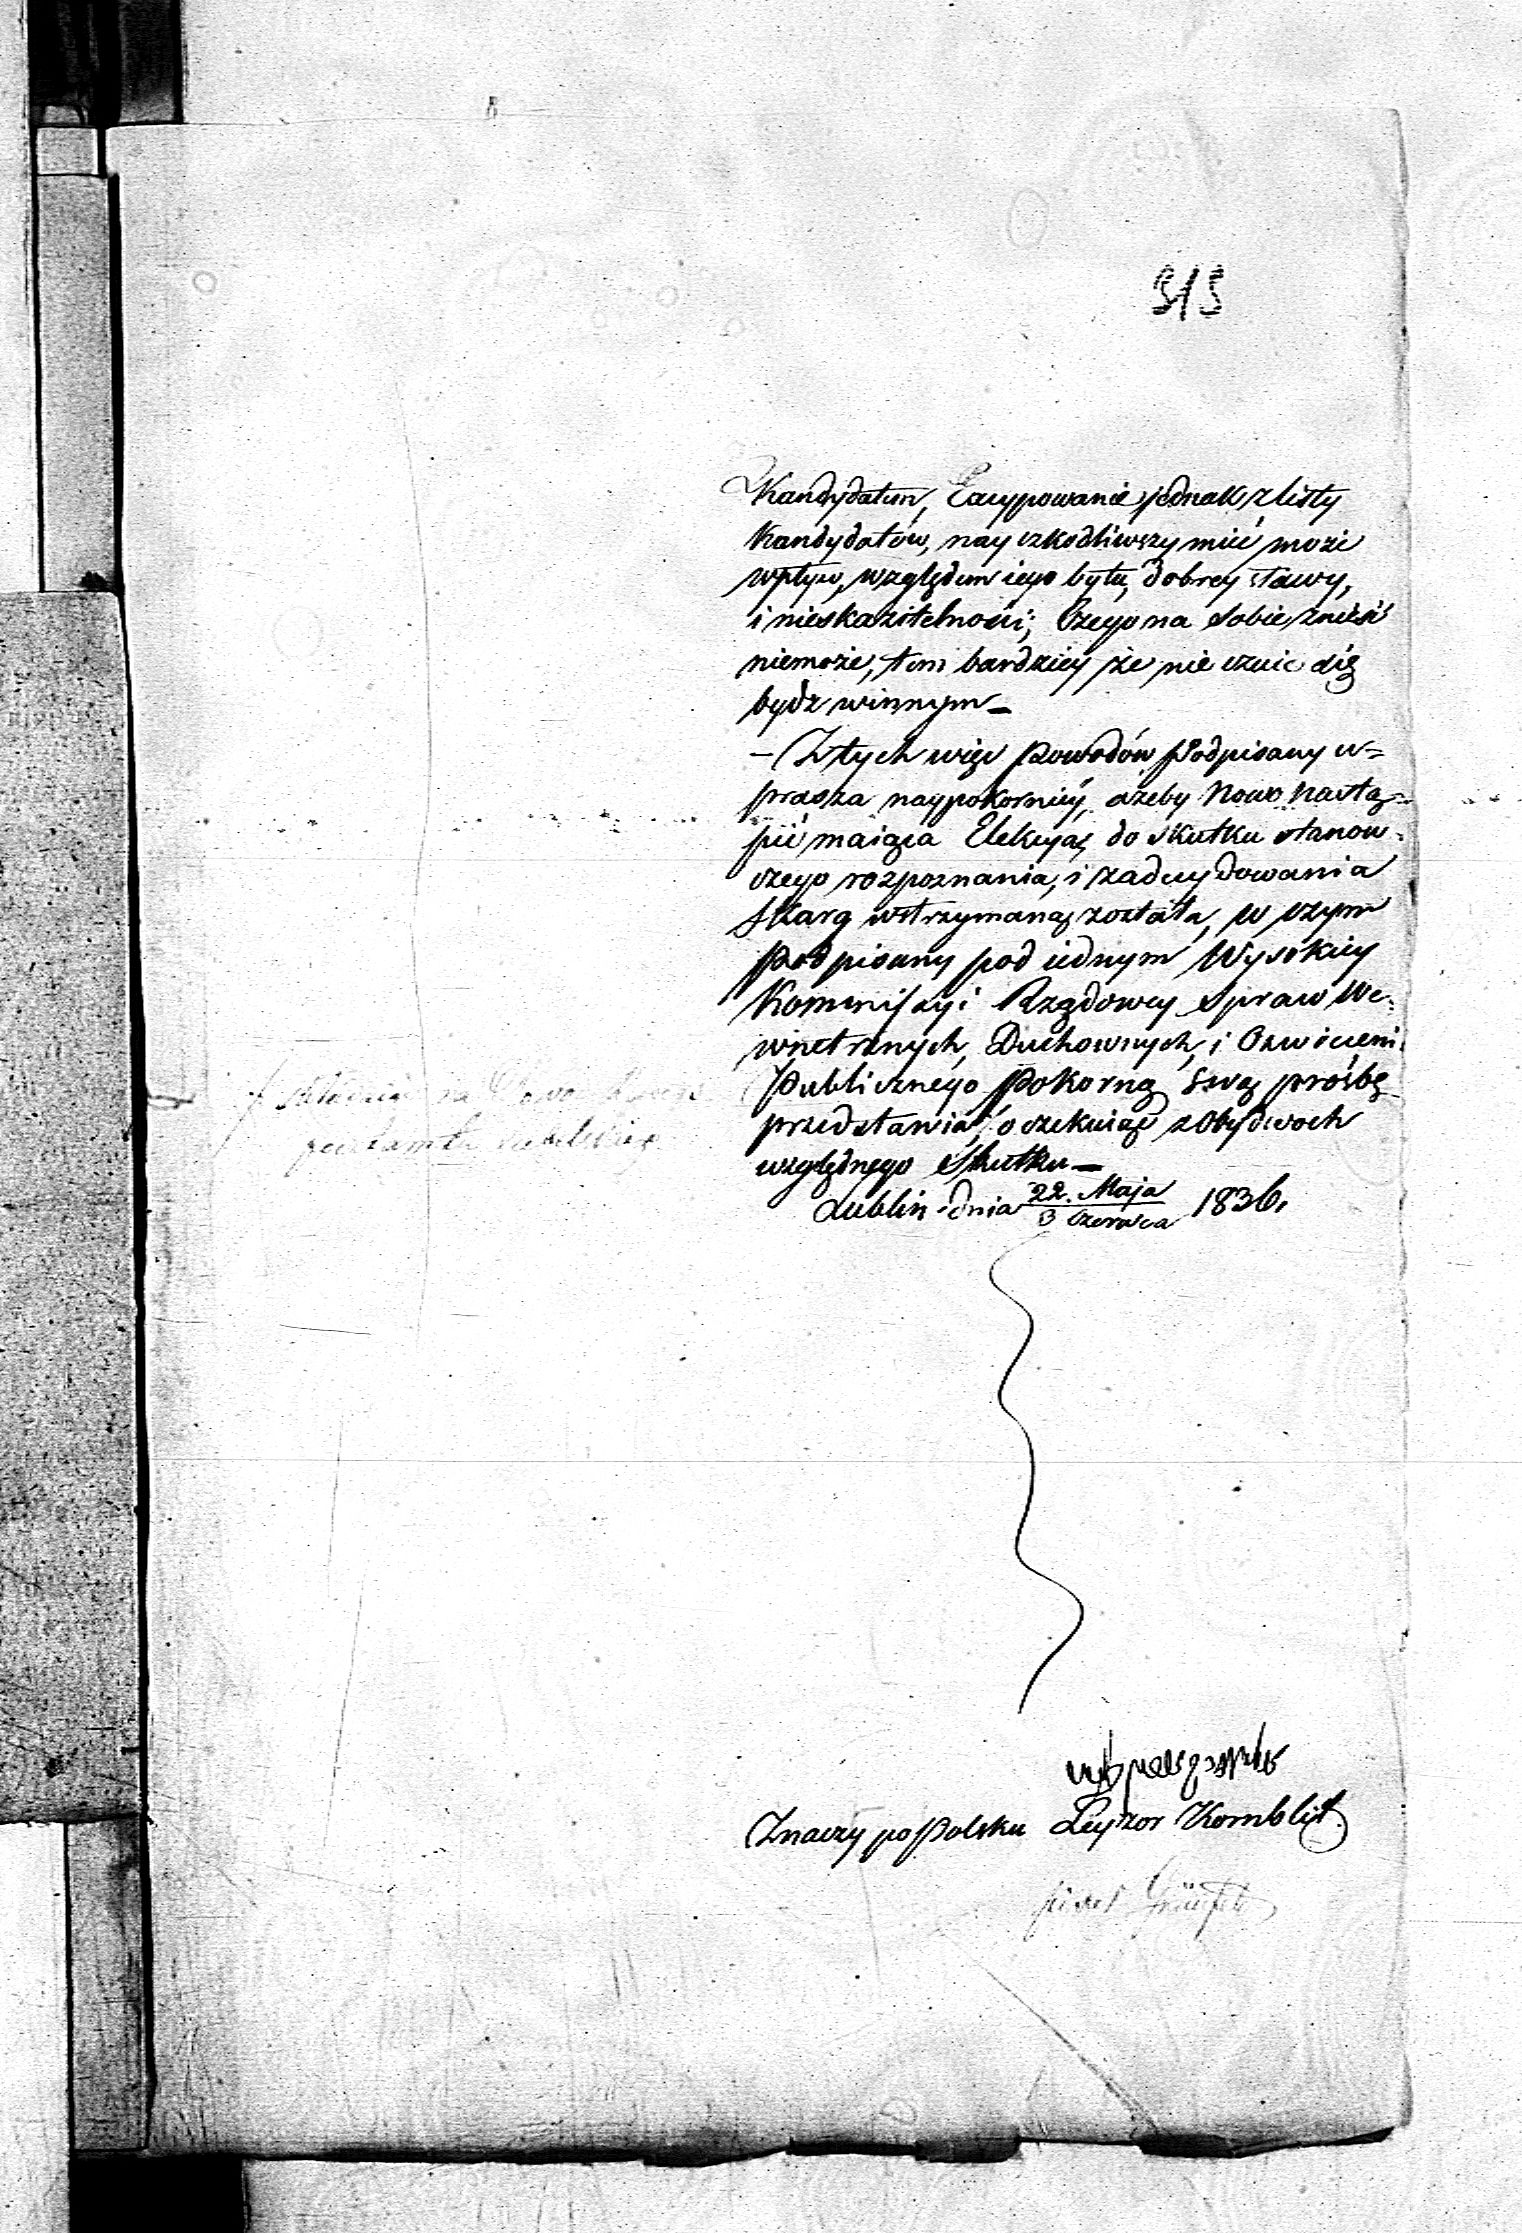 313
Kandydatem, Excypowanie jednak z listy
Kandydatów, nay szkodliwszy mieć może
wpływ, względem iego bytu, dobrey sławy,
i nieskazitelności; Czego na sobie znieść
niemoże, tem bardziey że nie czuie się
bydz winnym—
— Z tych więc powodów Podpisany u=
prasza naypokorniey, ażeby Nowo nastą=
pić maiąca Elekcya, do skutku stanow=
czego rozpoznania, i zadecydowania
Skarg wstrzymaną została, w czym
Podpisany pod iednym Wysokiey
Kommissyi Rządowey Spraw We=
wnetrznych, Duchownych, i Oswieceni
Publicznego Pokorną swą prośbę
przedstawia, oczekuiąc z Obydwoch
względnego Skutku—
Lublin dnia 22. Maja / 3 Czerwca 1836.
Znaczy po Polsku Leyzor Kornblit